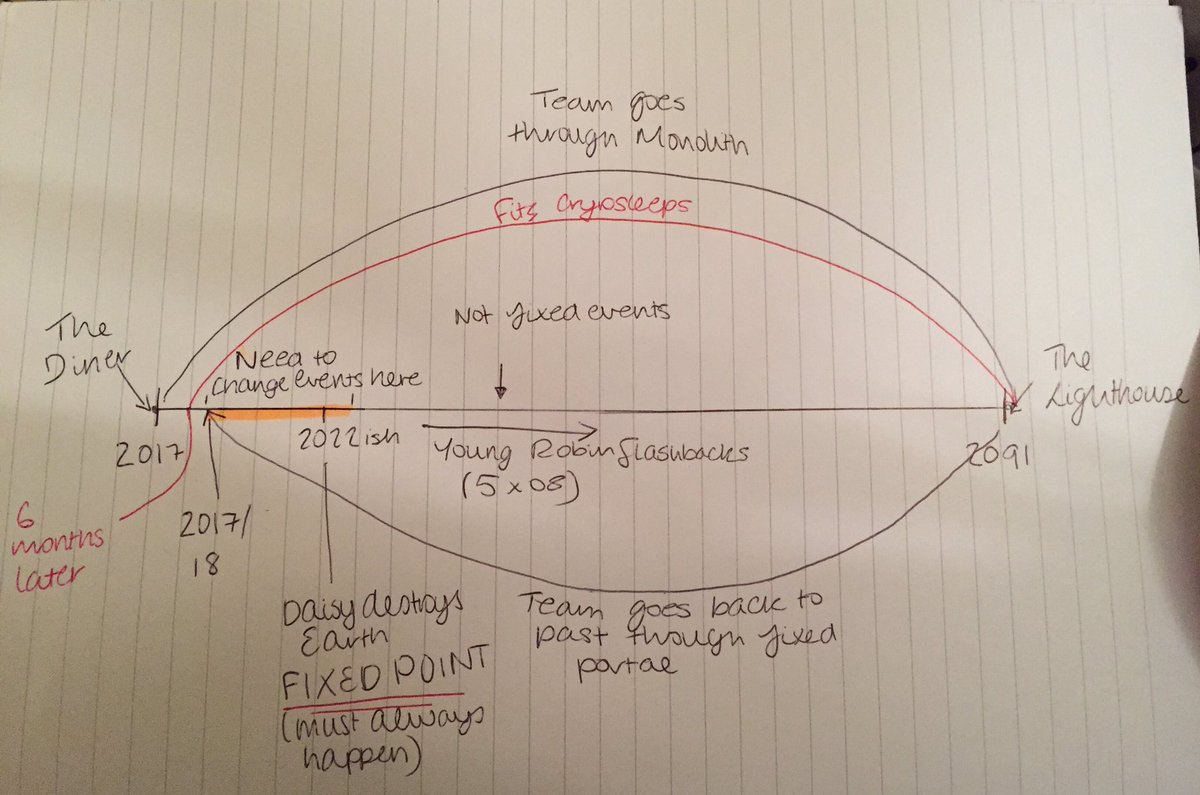 Team goes
through Monolith
Fitz Cryosleeps
Not fixed events
The
Diner
Need to
change events here
The
Lighthouse
2017
2022 ish
Young Robin flashbacks
(5x08)
2091
6
months
later
2017/
18
Daisy destroys
Earth
FIXED POINT
(must always
happen)
Team goes back to
past through fixed
portal